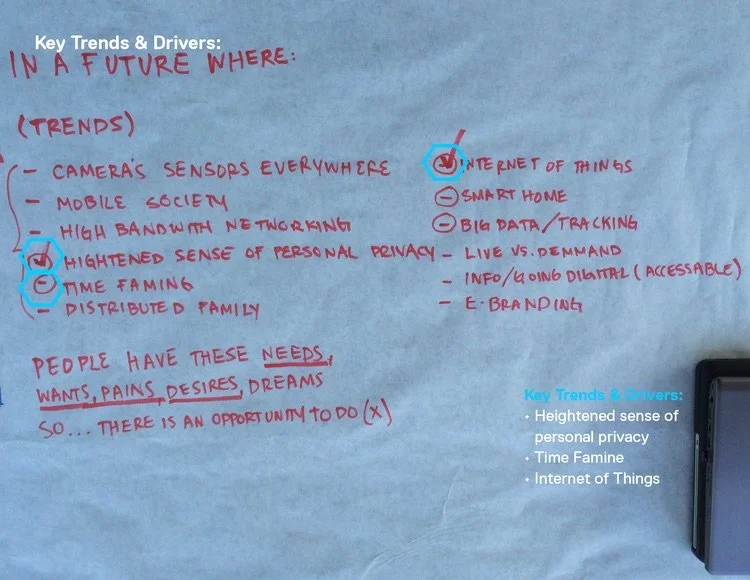 Key Trends & Drivers:
IN A FUTURE WHERE:
(TRENDS)
- CAMERA'S SENSORS EVERYWHERE
- MOBILE SOCIETY
- HIGH BANDWITH NETWORKING
HIGHTENED SENSE OF PERSONAL PRIVACY
- TIME FAMING
- DISTRIBUTED FAMILY
INTERNET OF THINGS
- SMART HOME
- BIG DATA/TRACKING
- LIVE VS. DEMMAND
- INFO/GOING DIGITAL (ACCESSABLE)
- E-BRANDING
PEOPLE HAVE THESE NEEDS,
WANTS, PAINS, DESIRES, DREAMS
SO... THERE IS AN OPPORTUNITY TO DO (X)
Key Trends & Drivers:
• Heightened sense of
personal privacy
• Time Famine
• Internet of Things